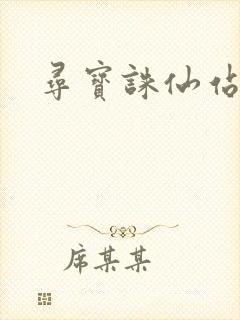 尋寶誅仙佔
席某某